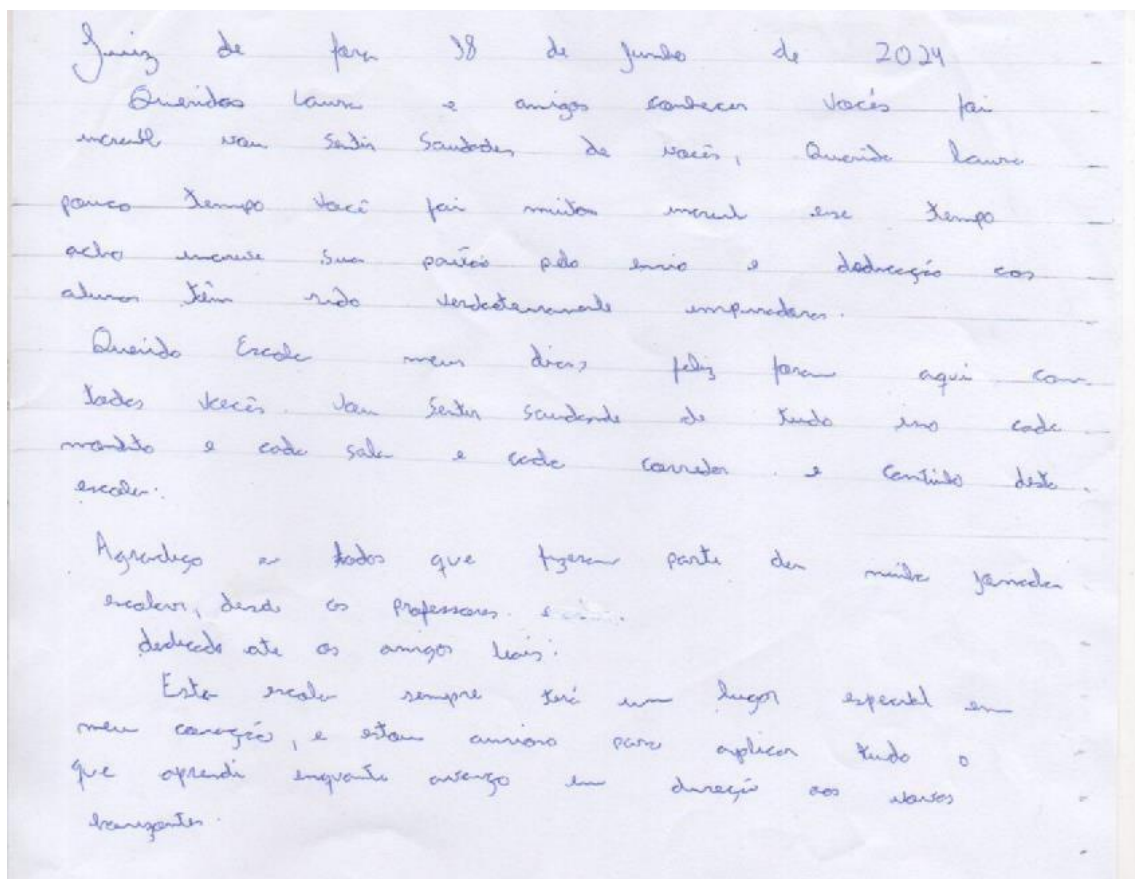 Juiz de fora 18 de Junho de 2024
Queridas Laura e amigos conhecer vocês foi
incrivél vou Sentir Saudades de vocês, Querida Laura
pouco tempo você foi muitos incrivel esse tempo
acho incrive Sua paixão pelo ensio e dedicação aos
alunos têm sido verdadeiramente inspiradora.
Querido Escola meus dias feliz foram aqui com
todos vocês. Vou Sentir de tudo isso cada
momento e cada sala e cada corredor e desta
escola.
Agradeço a todos que fizeram parte da minha jornada
escolar, desde os professores e
dedicado ate os amigos leais.
Esta escola sempre terá um lugar especial em
meu coração, e estou ansioso para aplicar tudo o
que aprendi enquanto avanço em direção aos novos
horizontes.